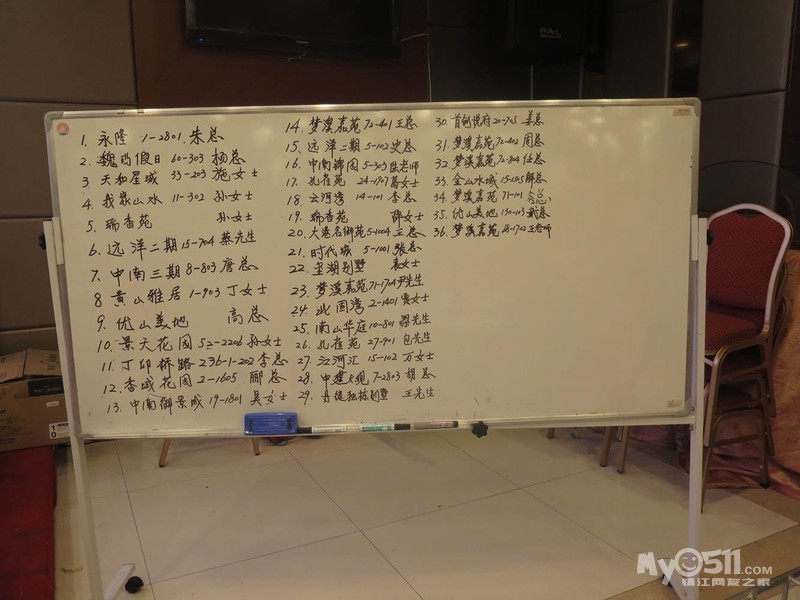 1. 永隆 1-2801. 朱总
2. 魏玛假日 60-303 杨总
3. 天和星城 33-203 施女士
4. 我家山水 11-302 孙女士
5. 瑞香苑 孙女士
6. 远洋二期 15-704 蔡先生
7. 中南三期 8-803 唐总
8 黄山雅居 1-903 丁女士
9. 优山美地 高总
10. 景天花园 52-2206 孙女士
11. 丁卯桥路 236-1-202 李总
12. 香城花园 2-1605 郦总
13. 中南御景城 19-1801 吴女士
14. 梦溪嘉苑 72-401 王总
15. 远洋二期 5-102 史总
16. 中南锦园 5-303 陆老师
17. 孔雀苑 24-1907 葛女士
18. 云河湾 14-101 李总
19. 瑞香苑 薛女士
20. 大港名御苑 5-1004 王总
21. 时代城 5-1001 张总
22. 圣湖别墅 女士
23. 梦溪嘉苑 71-1704 尹先生
24. 北固湾 2-1401 贵女士
25. 南山华庭 10-801 梁先生
26. 孔雀苑 27-901 包先生
27. 江河汇 15-102 万女士
28. 中建大观 7-2803 胡总
29. 丹徒独栋别墅 王先生
30. 首创悦府 20-705 姜总
31. 梦溪嘉苑 72-402 周总
32. 梦溪嘉苑 72-304 任总
33. 金山水城 15-1505 解总
34. 梦溪嘉苑 71-101 总
35. 优山美地 130-113 戴总
36. 梦溪嘉苑 68-1702 王老师
My0511.COM
镇江网友之家